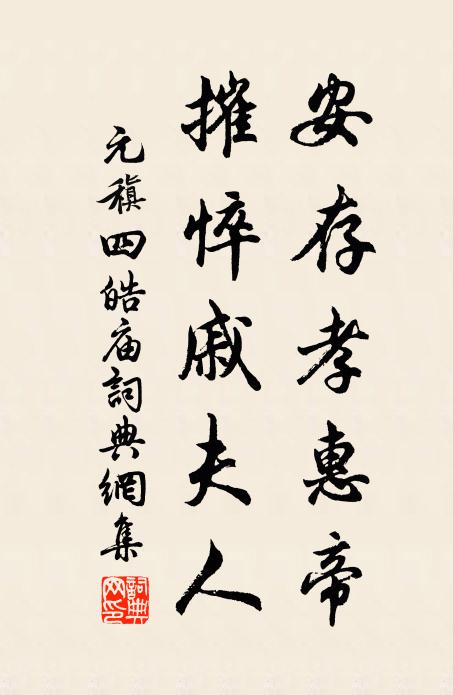 安存孝惠帝
摧悴戚夫人
元稹四皓庙詞典網集
詞典网印